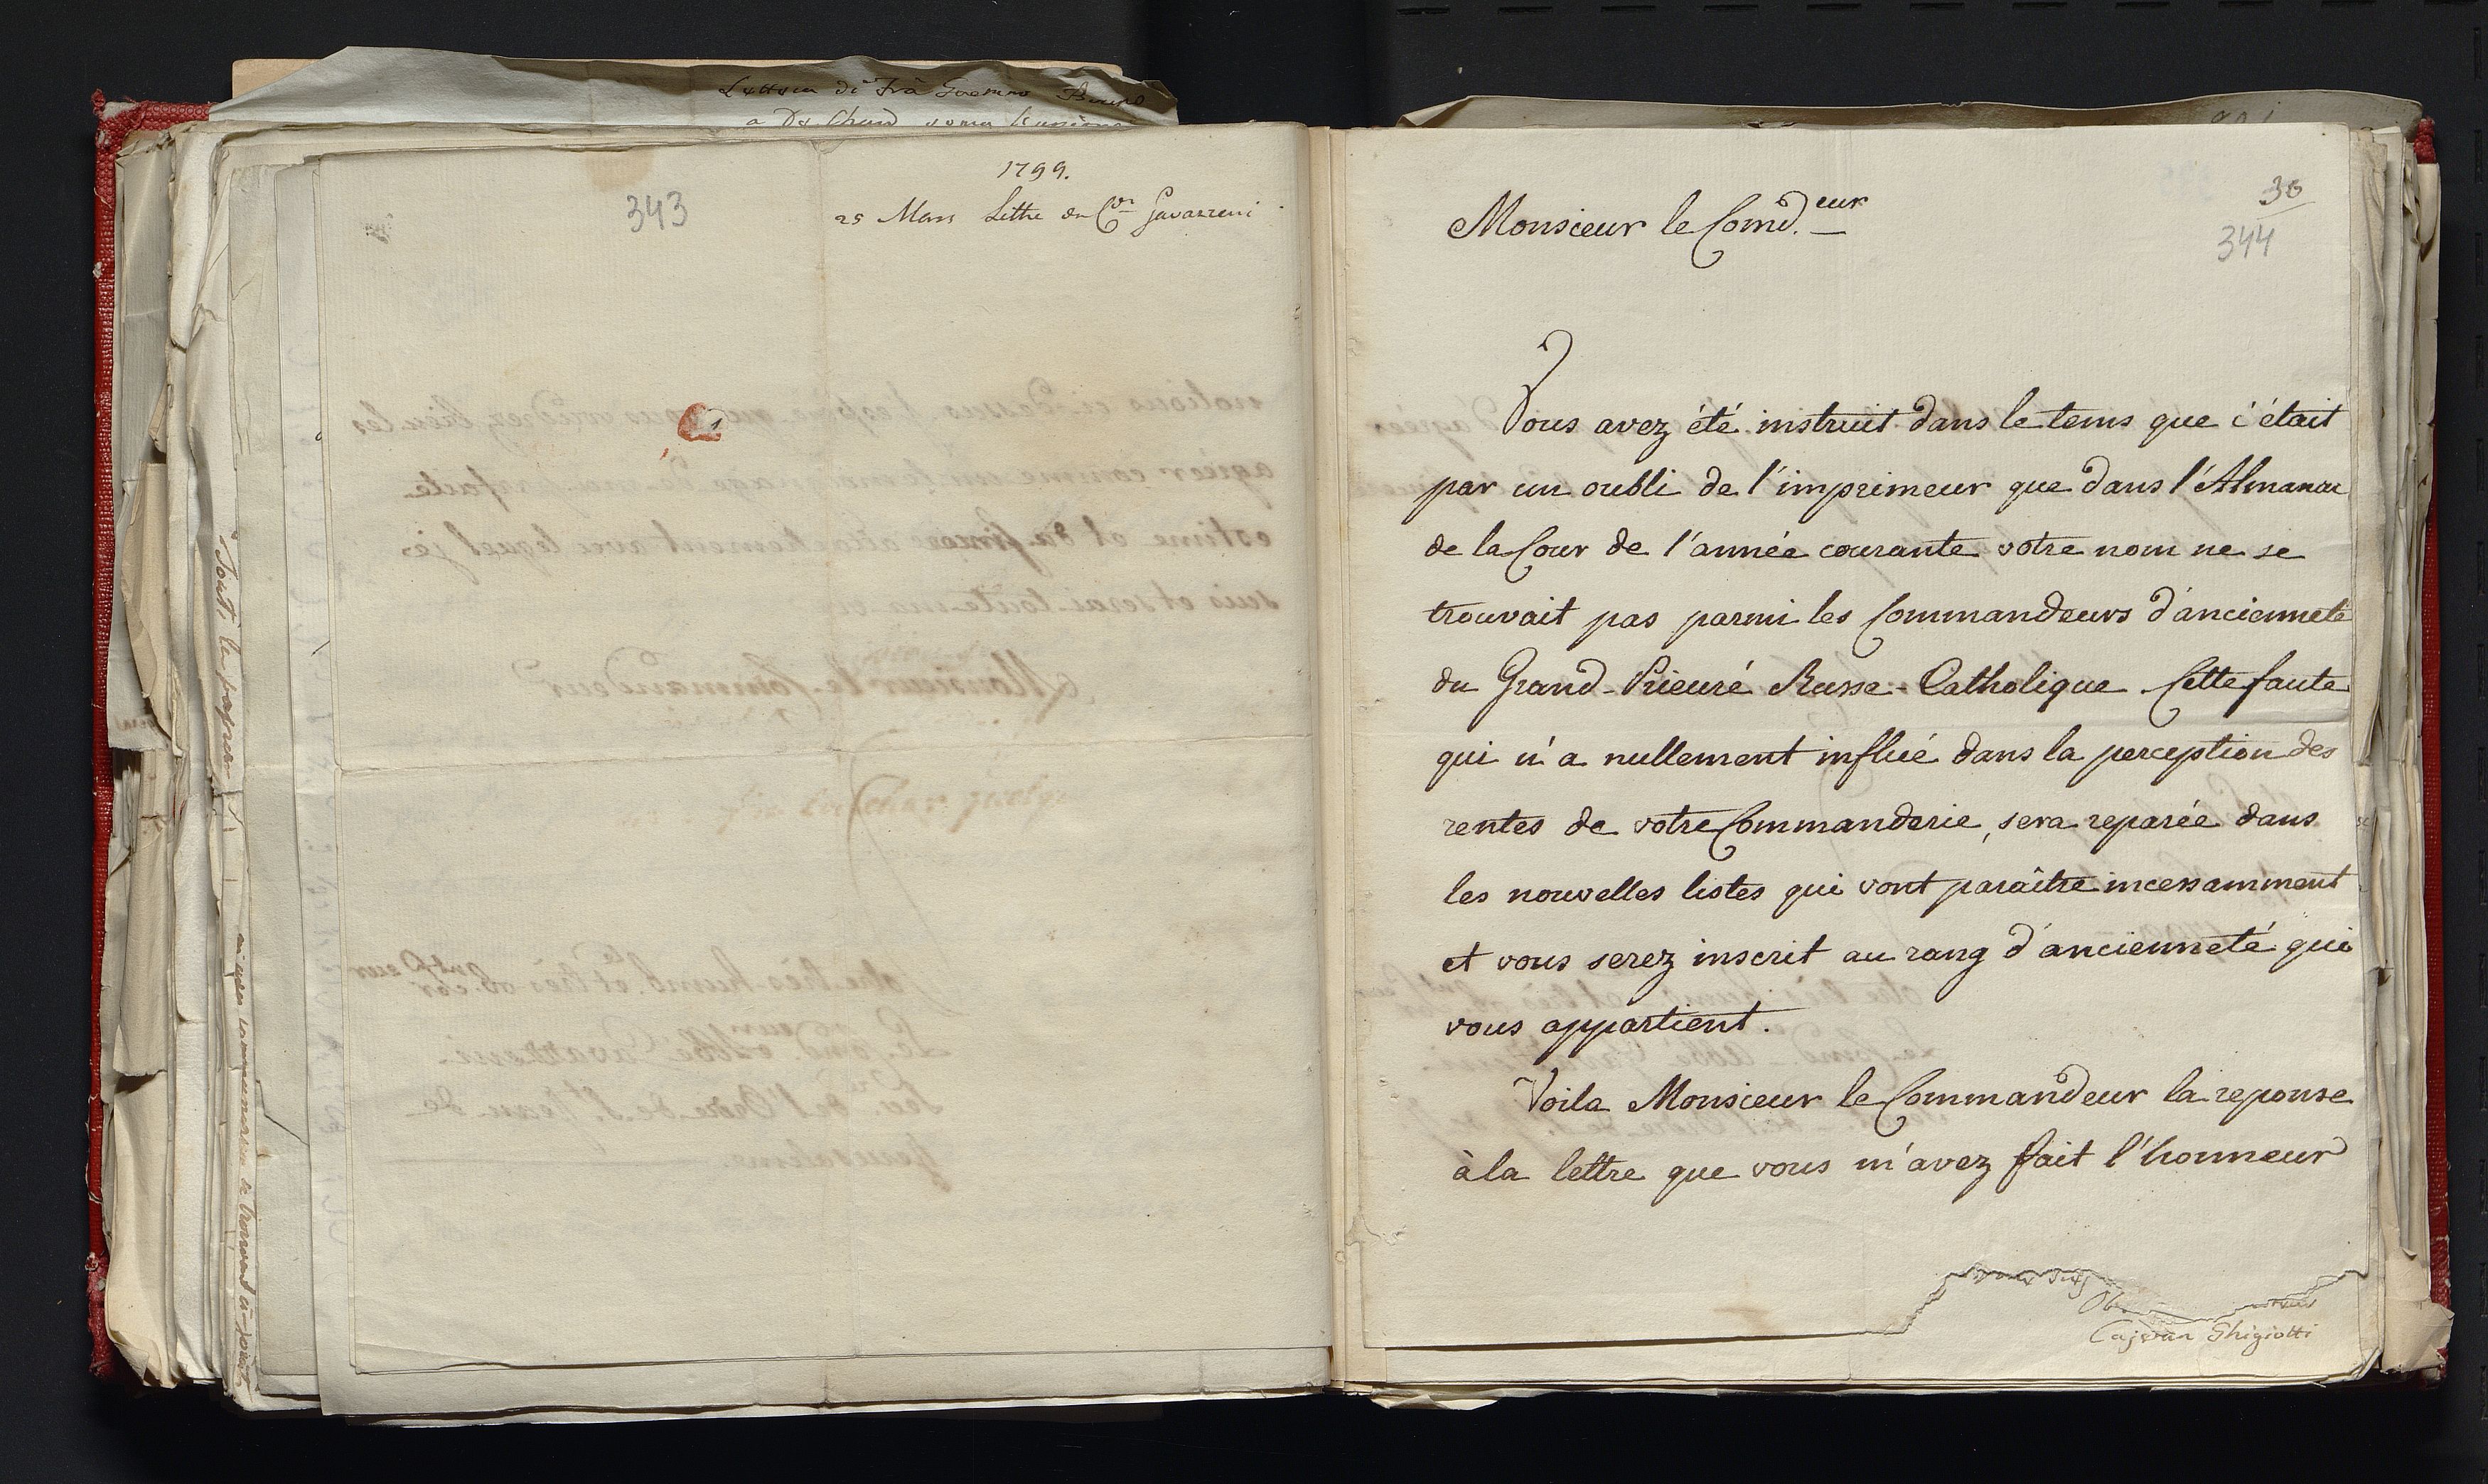 1799.
343
25 Mars Lettre du Cr Gavazzeni
30
344
Monsieur le Comd.eur
Vous avez été instruit dans le tems que c'était
par un oubli de l'imprimeur que dans l'Almanac
de la Cour de l'année courante votre nom ne se
trouvait pas parmi les Commandeurs d'ancienneté
du Grand-Prieuré Russe-Catholique. Cette faute
qui n'a nullement influé dans la perception des
rentes de votre Commanderie, sera reparée dans
les nouvelles listes qui vont paraître incessamment
et vous serez inscrit au rang d'ancienneté qui
vous appartient.
Voila Monsieur le Commandeur la reponse
à la lettre que vous m'avez fait l'honneur
Ghigiotti